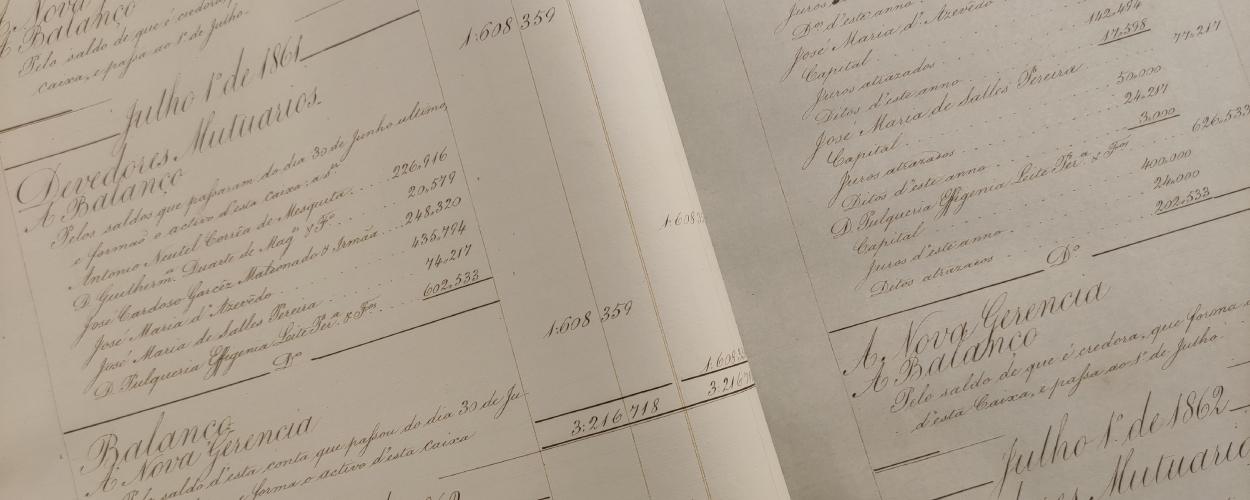 A Nova
A Balanço
Pelo saldo de que é credora
caixa, e passa ao 1º de Julho.
1:608 359
Julho 1º de 1861
Devedores Mutuarios.
A Balanço
Pelos saldos que passaram do dia 30 de Junho ultimo,
e formaõ o activo d'esta caixa: a sr
Antonio Neutel Corrêa de Mesquita 226,916
D. Guilherm.ª Duarte de Mag.es & Fº 20,579
José Cardoso Garcéz Matronado & Irmãa 248,320
José Maria d'Azevêdo 435,794
José Maria de Salles Pereira 74,217
D. Pulqueria Effigenia Leite Fer.ª & Fos 602,533
1:608 359
Dº
Balanço
A' Nova Gerencia
Pelo saldo d'esta conta que passou do dia 30 de Ju-
e forma o activo d'esta caixa
1:608
1:608,3
3:216 718
3:216,71
Juros
Dos d'este anno
José Maria d'Azevêdo
Capital 142,494
Juros atrazados 17,598
Ditos d'este anno 77,217
José Maria de Salles Pereira
Capital 50,000
Juros atrazados 24,217
Ditos d'este anno 3,000
D. Pulqueria Effigenia Leite Fer.ª & Fos 626,533
Capital 400,000
Juros d'este anno 24,000
Ditos atrazados 202,533
Dº
A' Nova Gerencia
A Balanço
Pelo saldo de que é credora, que forma
d'esta Caixa, e passa ao 1º de Julho.
Julho 1º de 1862
Mutuario